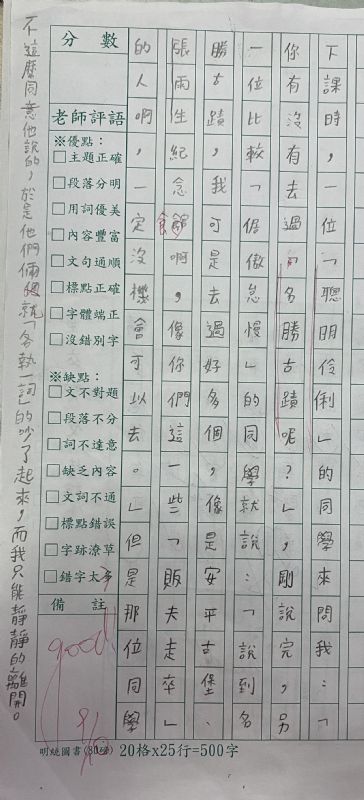 下課時，一位「聰明伶俐」的同學來問我：「
你有沒有去過「名勝古蹟」呢？」，剛說完，另
一位比較「倨傲怠慢」的同學就說：「說到名
勝古蹟我可是去過好多個，像是安平古堡、
張雨生紀念館啊，像你們這些「販夫走卒」
的人啊，一定沒機會可以去。」但是那位同學
不這麼同意他說的，於是他們倆就「各執一詞」的吵了起來，而我只能靜靜的離開。
分數
老師評語
※優點：
□主題正確
□段落分明
□用詞優美
□內容豐富
□文句通順
□標點正確
□字體端正
□沒錯別字
※缺點：
□文不對題
□段落不分
□詞不達意
□缺乏內容
□文詞不通
□標點錯誤
□字跡潦草
□錯字太多
備註
good
明統圖書(80磅) 20格x25行=500字